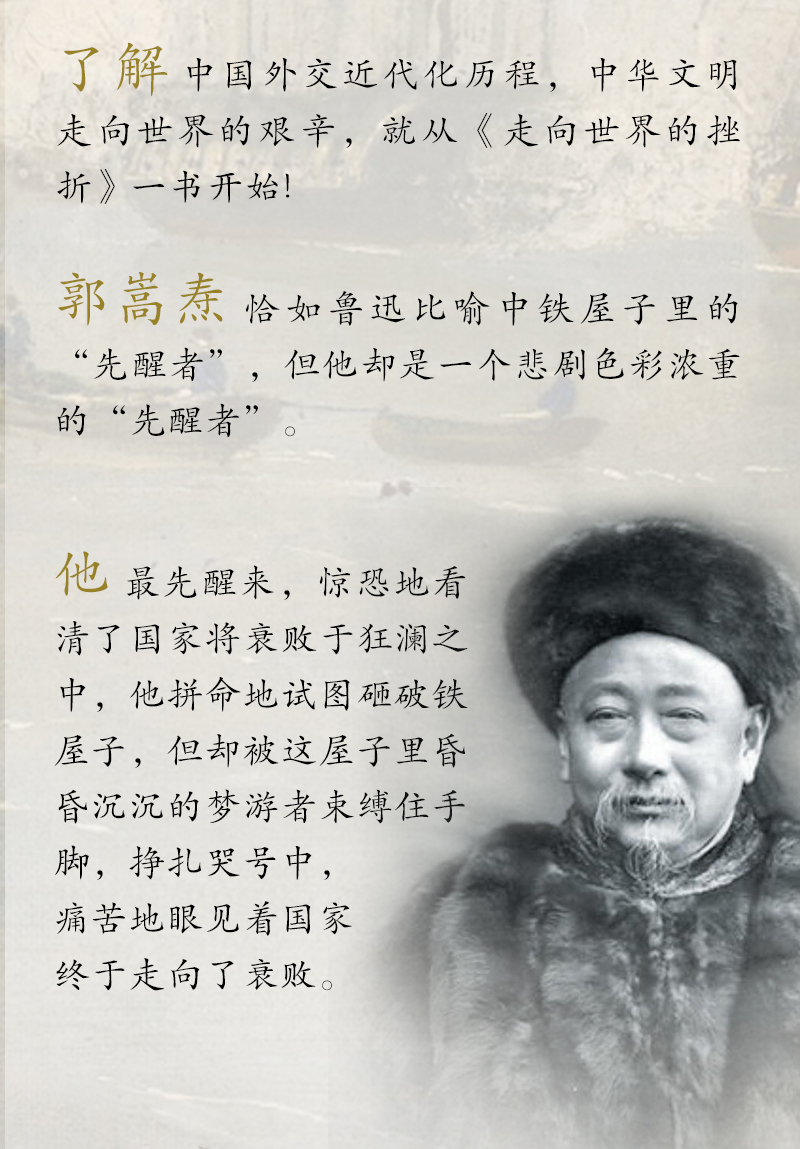 了解 中国外交近代化历程，中华文明
走向世界的艰辛，就从《走向世界的挫
折》一书开始!
郭嵩焘 恰如鲁迅比喻中铁屋子里的
“先醒者”，但他却是一个悲剧色彩浓重
的“先醒者”。
他 最先醒来，惊恐地看
清了国家将衰败于狂澜之
中，他拼命地试图砸破铁
屋子，但却被这屋子里昏
昏沉沉的梦游者束缚住手
脚，挣扎哭号中，
痛苦地眼见着国家
终于走向了衰败。